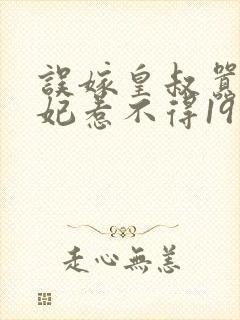 誤嫁皇叔醫
妃惹不得19
走心無恙